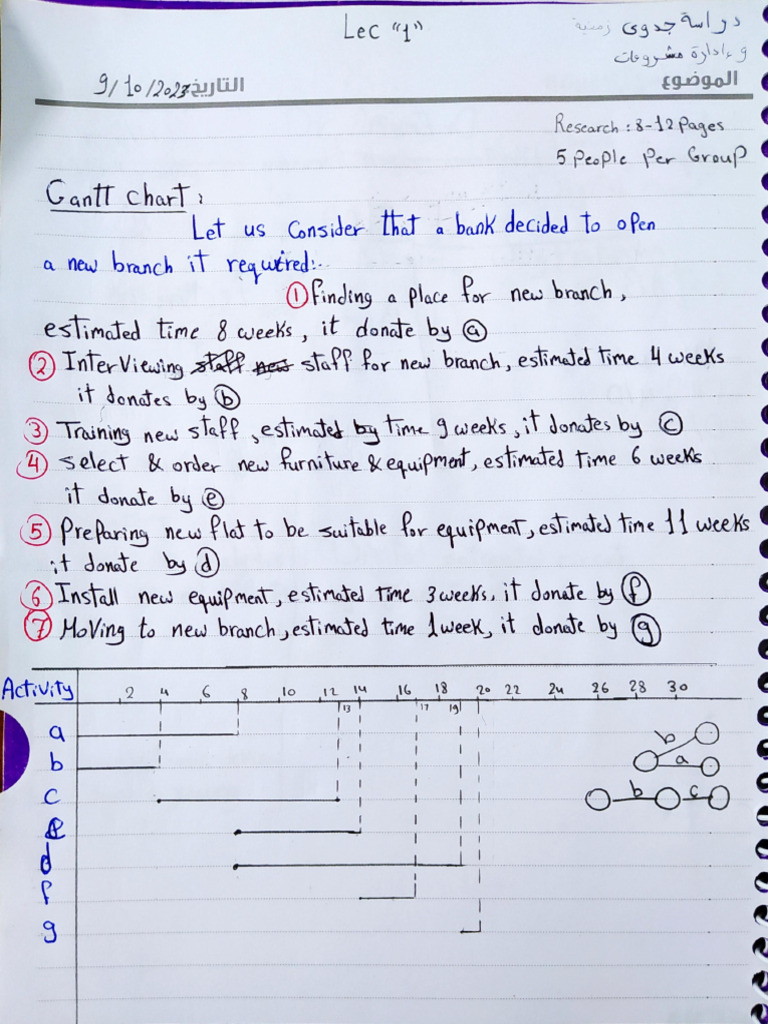 Lec "1"
دراسة جدوى زمنية
و إدارة مشروعات
الموضوع
التاريخ 9/10/2023
Research : 8-12 Pages
5 People Per Group
Gantt chart :
Let us consider that a bank decided to open
a new branch it required:..
① finding a place for new branch,
estimated time 8 weeks, it donate by ⓐ
② Interviewing staff new staff for new branch, estimated time 4 weeks
it donates by ⓑ
③ Training new staff, estimated by time 9 weeks, it donates by ⓒ
④ select & order new furniture & equipment, estimated time 6 weeks
it donate by ⓔ
⑤ Preparing new flat to be suitable for equipment, estimated time 11 weeks
it donate by ⓓ
⑥ Install new equipment, estimated time 3 weeks, it donate by ⓕ
⑦ Moving to new branch, estimated time 1 week, it donate by ⓖ
Activity 2 4 6 8 10 12 14 16 18 20 22 24 26 28 30
13 17 19
a
b
c
e
d
f
g
b
a
b c